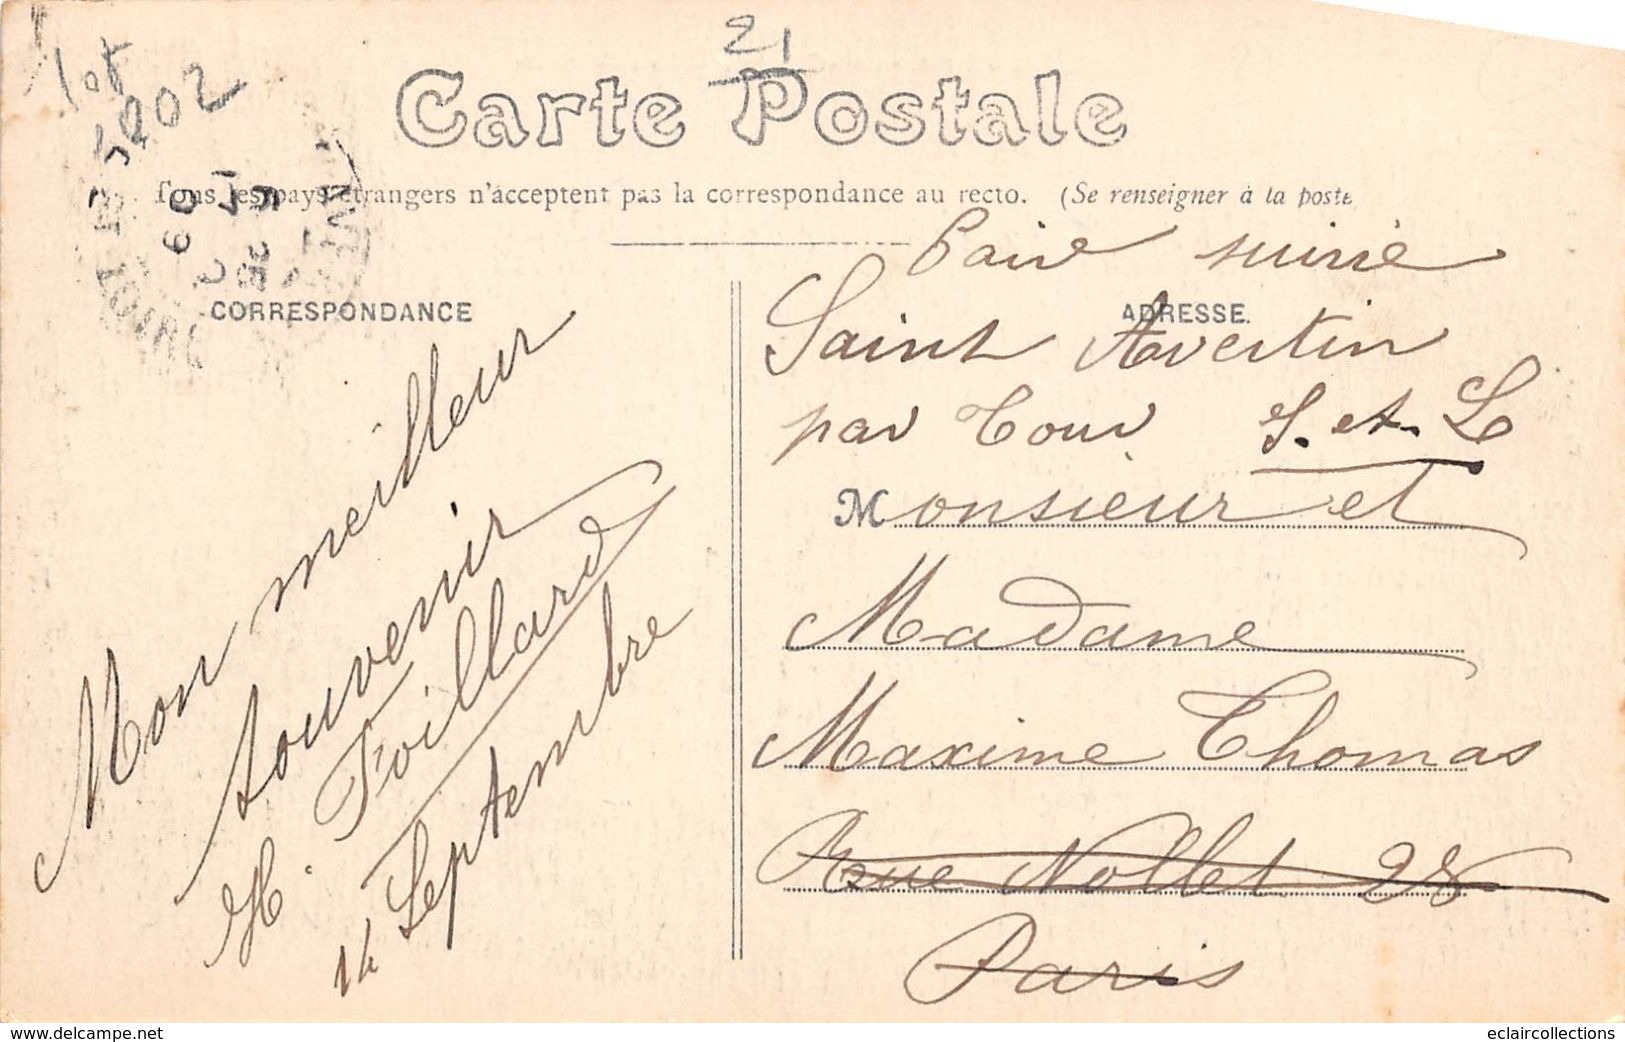 21
lot
5202
Carte Postale
Tous les pays étrangers n'acceptent pas la correspondance au recto. (Se renseigner à la poste
CORRESPONDANCE
Mon meilleur
souvenir
H. Foillard
14 Septembre
ADRESSE.
Faire suivre
Saint Avertin
par Tour I. et. L
Monsieur et
Madame
Maxime Thomas
Rue Nollet 28
Paris
www.delcampe.net
eclaircollections